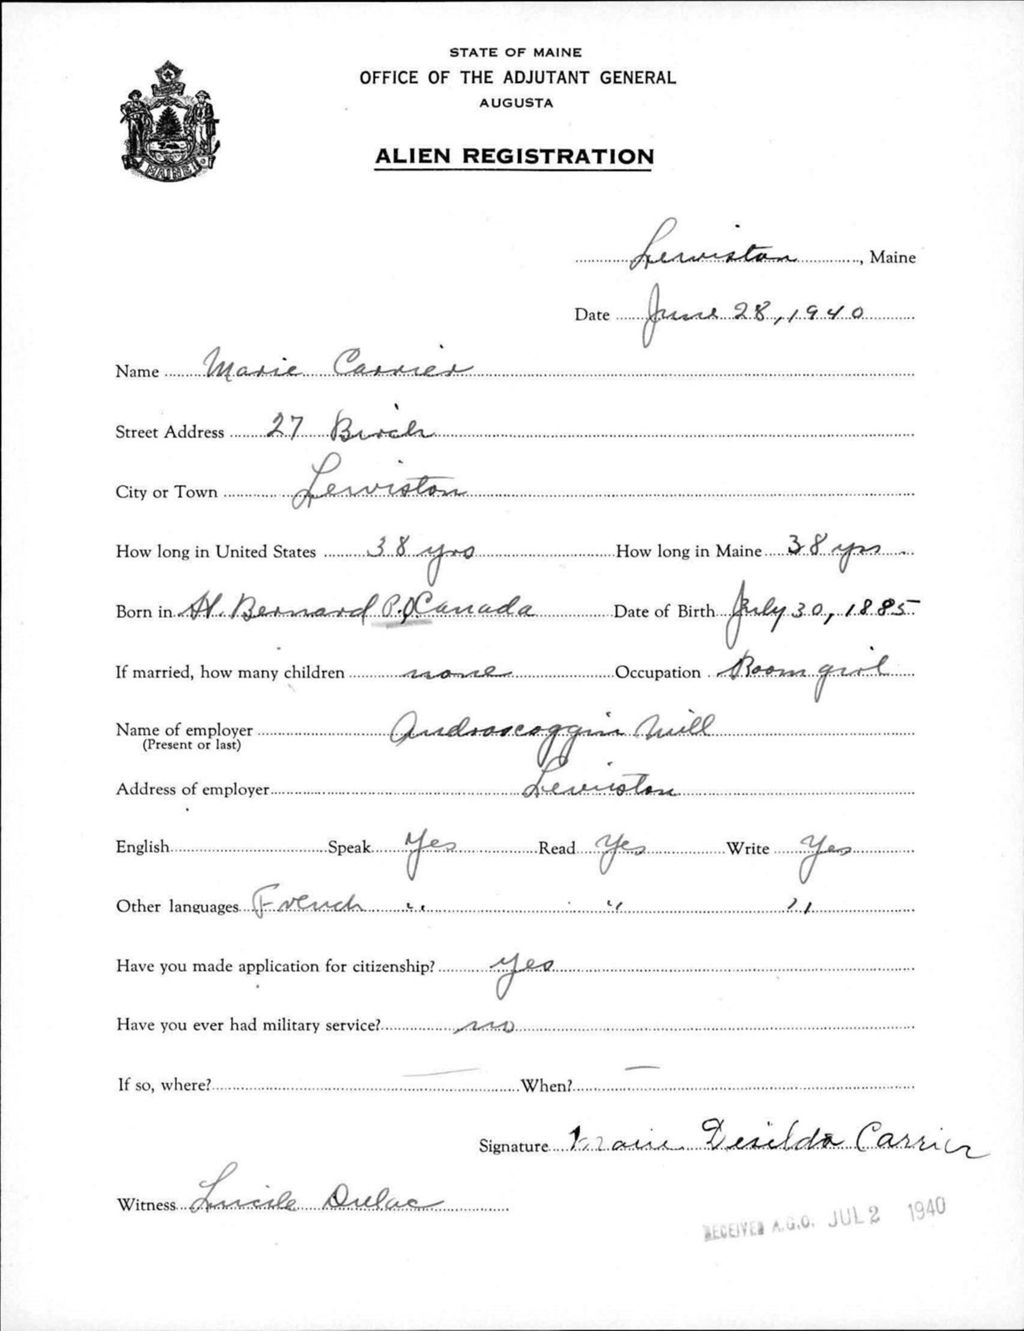 STATE OF MAINE
OFFICE OF THE ADJUTANT GENERAL
AUGUSTA
ALIEN REGISTRATION
MAINE
Lewiston, Maine
Date June 28, 1940
Name Marie Carrier
Street Address 27 Birch
City or Town Lewiston
How long in United States 38 yrs How long in Maine 38 yrs
Born in St. Bernard P.Q Canada Date of Birth July 30, 1885
If married, how many children none Occupation Room girl
Name of employer Androscoggin Mill
(Present or last)
Address of employer Lewiston
English Speak Yes Read Yes Write Yes
Other languages French " " "
Have you made application for citizenship? yes
Have you ever had military service? no
If so, where? — When? —
Signature Marie Desilda Carrier
Witness Lucile Dulac
RECEIVED A.G.O. JUL 2 1940